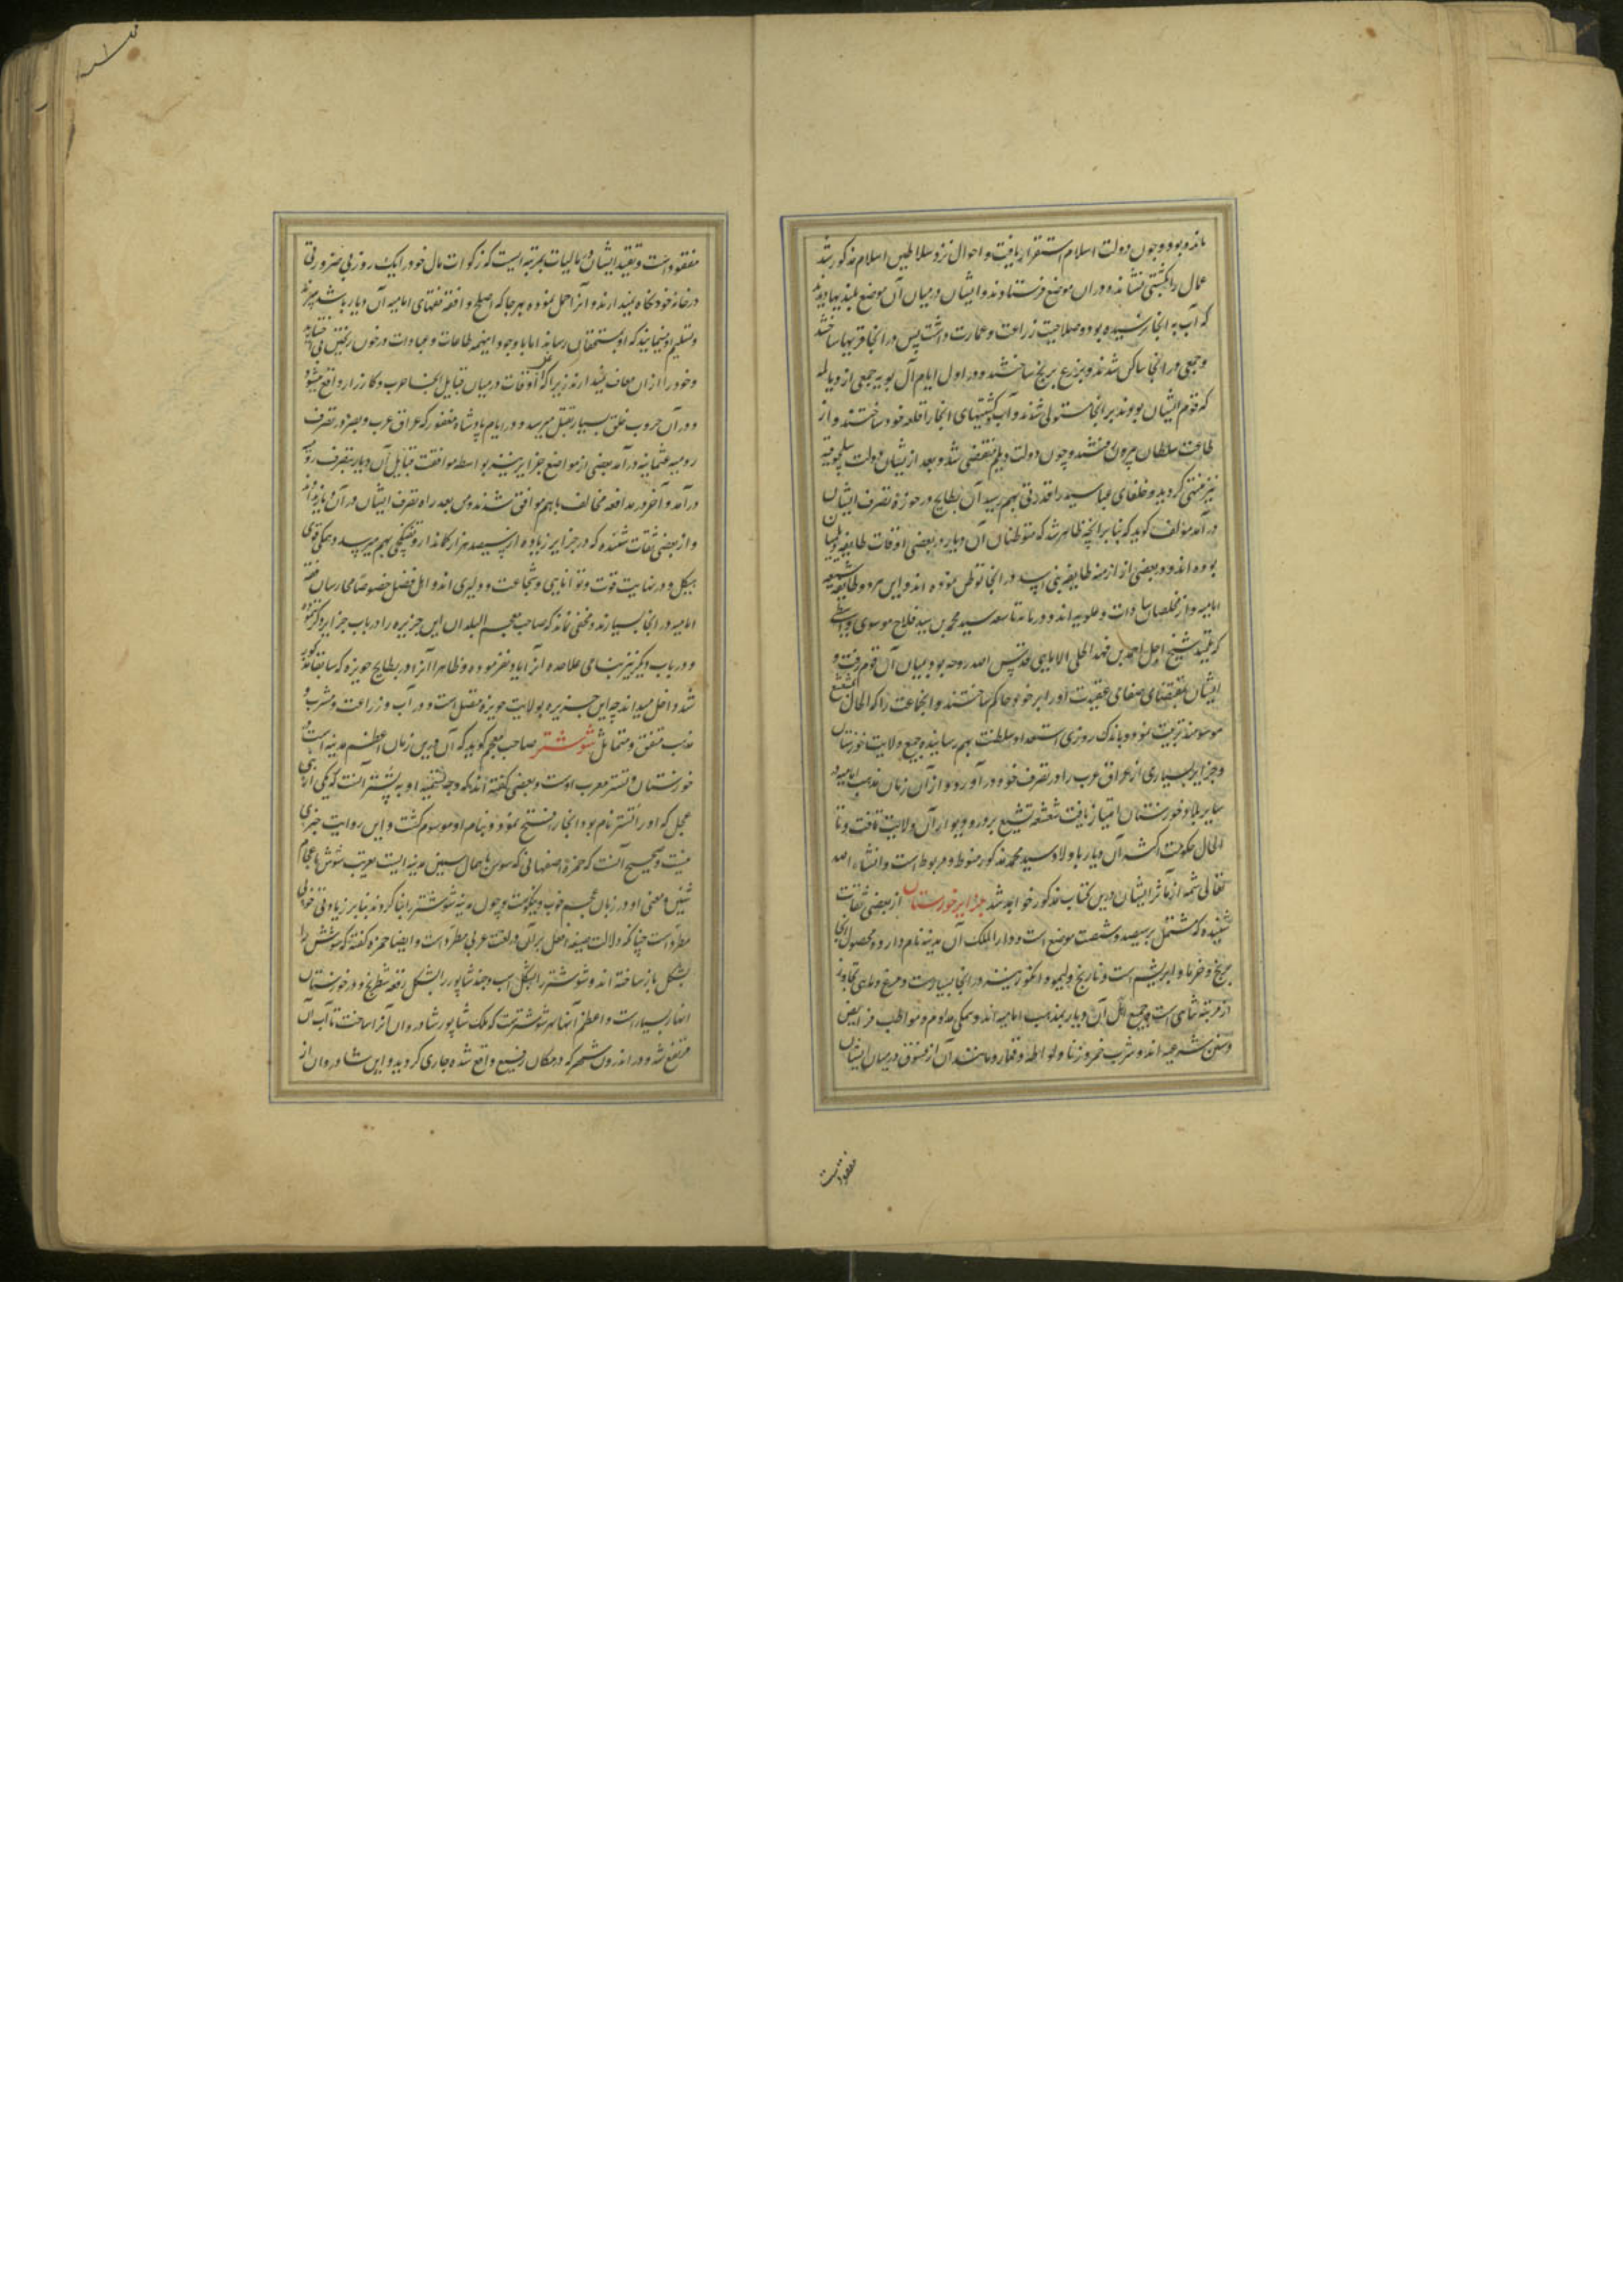 مانده بود و چون دولت اسلام استقرار یافت و احوال نزد سلاطین اسلام مذکور شد
عمال را بکشتی نشانده در ان موضع فرستادند و ایشان در میان آن موضع بلندیها دیدند
که آب به انجا نرسیده بود و صلاحیت زراعت و عمارت داشت پس در انجا قریها ساختند
و جمعی در انجا ساکن شدند و بزرع برنج ساختند و در اول ایام آل بویه جمعی از دیالمه
که قوم ایشان بودند بر انجا مستولی شدند و آب و کشتیهای انجا را قلعه خود ساختند و از
طاعت سلطان بیرون رفتند و چون دولت دیلم منقضی شد و بعد از یشان دولت سلجوقیه
نیز منتهی کردید و خلفای عباسیه را قدرتی بهم رسید آن بطایح در حوزه تصرف ایشان
در آمد مؤلف کوید که بنابر انچه ظاهر شد که متوطنان آن دیار در بعضی اوقات طایفه دیلمیان
بوده اند و در بعضی از ازمنه طایفه بنی اسد در انجا توطن نموده اند و این هر دو طایفه شیعه
امامیه و از مخلصان سادات و علویه اند و در مائه تاسعه سید محمد بن سید فلاح موسوی واسطی
که تلمیذ شیخ اجل احمد بن فهد الحلی الامامی قدس الله روحه بود بمیان آن قوم رفت و
ایشان بمقتضای صفای عقیدت او را بر خود حاکم ساختند و انجماعت را که الحال مشعشع
موسومند تربیت نمود و باندک روزی استعداد سلطنت بهم رسانیده جمیع ولایت خوزستان
و جزایر و بسیاری از عراق عرب را در تصرف خود در آورد و از آن زمان مذهب امامیه در
سایر بلاد خوزستان امتیاز یافت شعشعه تشیع بر در و دیوار آن ولایت تافت و تا
الحال حکومت اکثر آن دیار باولاد سید محمد مذکور منوط و مربوط است و انشاء الله
تعالی شمه از مآثر ایشان درین کتاب مذکور خواهد شد جزایر خوزستان از بعضی ثقات
شنیده که مشتمل بر سیصد و شصت موضع است و دار الملک آن مدینه نام دارد و محصول انجا
برنج و خرما و ابریشم است و نارنج و لیمو و انکور نیز در انجا بسیارست و مرغ و ماهی تجاوز
از مرتبه تناهی است و جمیع اهل آن دیار بمذهب امامیه اند و همکی مداوم و مواظب فرایض
و سنن شرعیه اند و شرب خمر و زنا و لواطه و قمار و مانند آن از فسوق در میان ایشان
مفقودست
مفقودست و تقید ایشان در مالیات بمرتبه ایست که زکوات مال خود را یک روز بی ضرورتی
در خانه خود نکاه نمیدارند و آنرا حمل نموده بهر جا که اصلح و افقه فقهای امامیه آن دیار باشد میبرند
و تسلیم او مینمایند که او بمستحقان رساند اما با وجود اینهمه طاعات و عبادات در خون ریختن بی
و خود را از ان معاف نمیدارند زیرا که اوقات در میان قبایل انجا حرب و کارزار واقع میشود
و در آن حروب خلق بسیار بقتل میرسد و در ایام پادشاه مغفور که عراق عرب و بصره در تصرف
رومیه عثمانیه در آمد بعضی از مواضع جزایر نیز بواسطه موافقت قبایل آن دیار بتصرف رومیه
در آمد و آخر در مدافعه مخالف باهم موافق شدند و من بعد راه تصرف ایشان در آن دیار
و از بعضی ثقات شنیده که در جزایر زیاده از سیصد هزار کماندار و تفنکچی بهم میرسد و همکی قوی
هیکل و در نهایت قوت و توانایی و شجاعت و دلیری اند و اهل فضل خصوصا ممارسان فقه
امامیه در انجا بسیارند و مخفی نماند که صاحب معجم البلدان این جزیره را در باب جزایر ذکر ننموده
و در باب دیکر نیز بنامی علاحده آنرا یاد نفرموده و ظاهرا آنرا در بطایح حویزه که سابقا مذکور
شد داخل میداند چه این جزیره بولایت حویزه متصل است و در آب و زراعت و مشرب و
مذهب متفق و متماثل شوشتر صاحب معجم کوید که آن درین زمان اعظم مدینه است در
خوزستان و تستر معرب اوست و بعضی کفته اند که وجه تسمیه او به تستر آنست که یکی از بنی
عجل که او را تستر نام بود انجا را فتح نمود و بنام او موسوم کشت و این روایت چیزی
نیست و صحیح آنست که حمزه اصفهانی که سوس باهمال سین مدینه ایست معرب شوش باعجام
شین و معنی او در زبان عجم خوب و نیکوست و چون مدینه شوشتر را بنا کردند بنابر زیادتی خوبی
مطرد است چنانکه دلالت صیغه افعل بر آن در لغت عربی مطرد است و ایضا حمزه کفته که شوش را
بشکل باز ساخته اند و شوشتر را بشکل اسب و جند شاپور را بشکل رقعه شطرنج و در خوزستان
انهار بسیار است و اعظم آنها نهر شوشترست که ملک شاپور شادروان آنرا ساخت تا آب آن
مرتفع شد و در اندرون شهر که در مکان رفیع واقع شده جاری کردید و این شادروان از